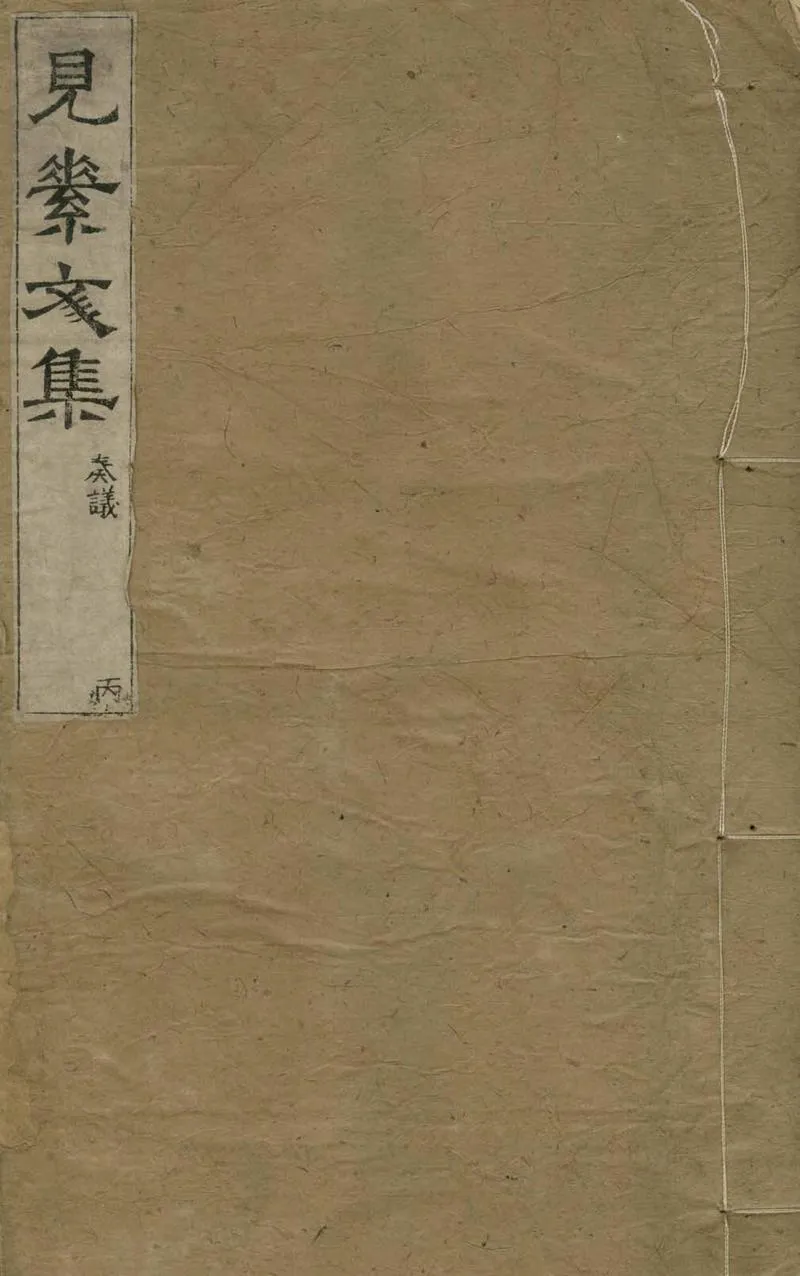 見素文集
奏議
丙